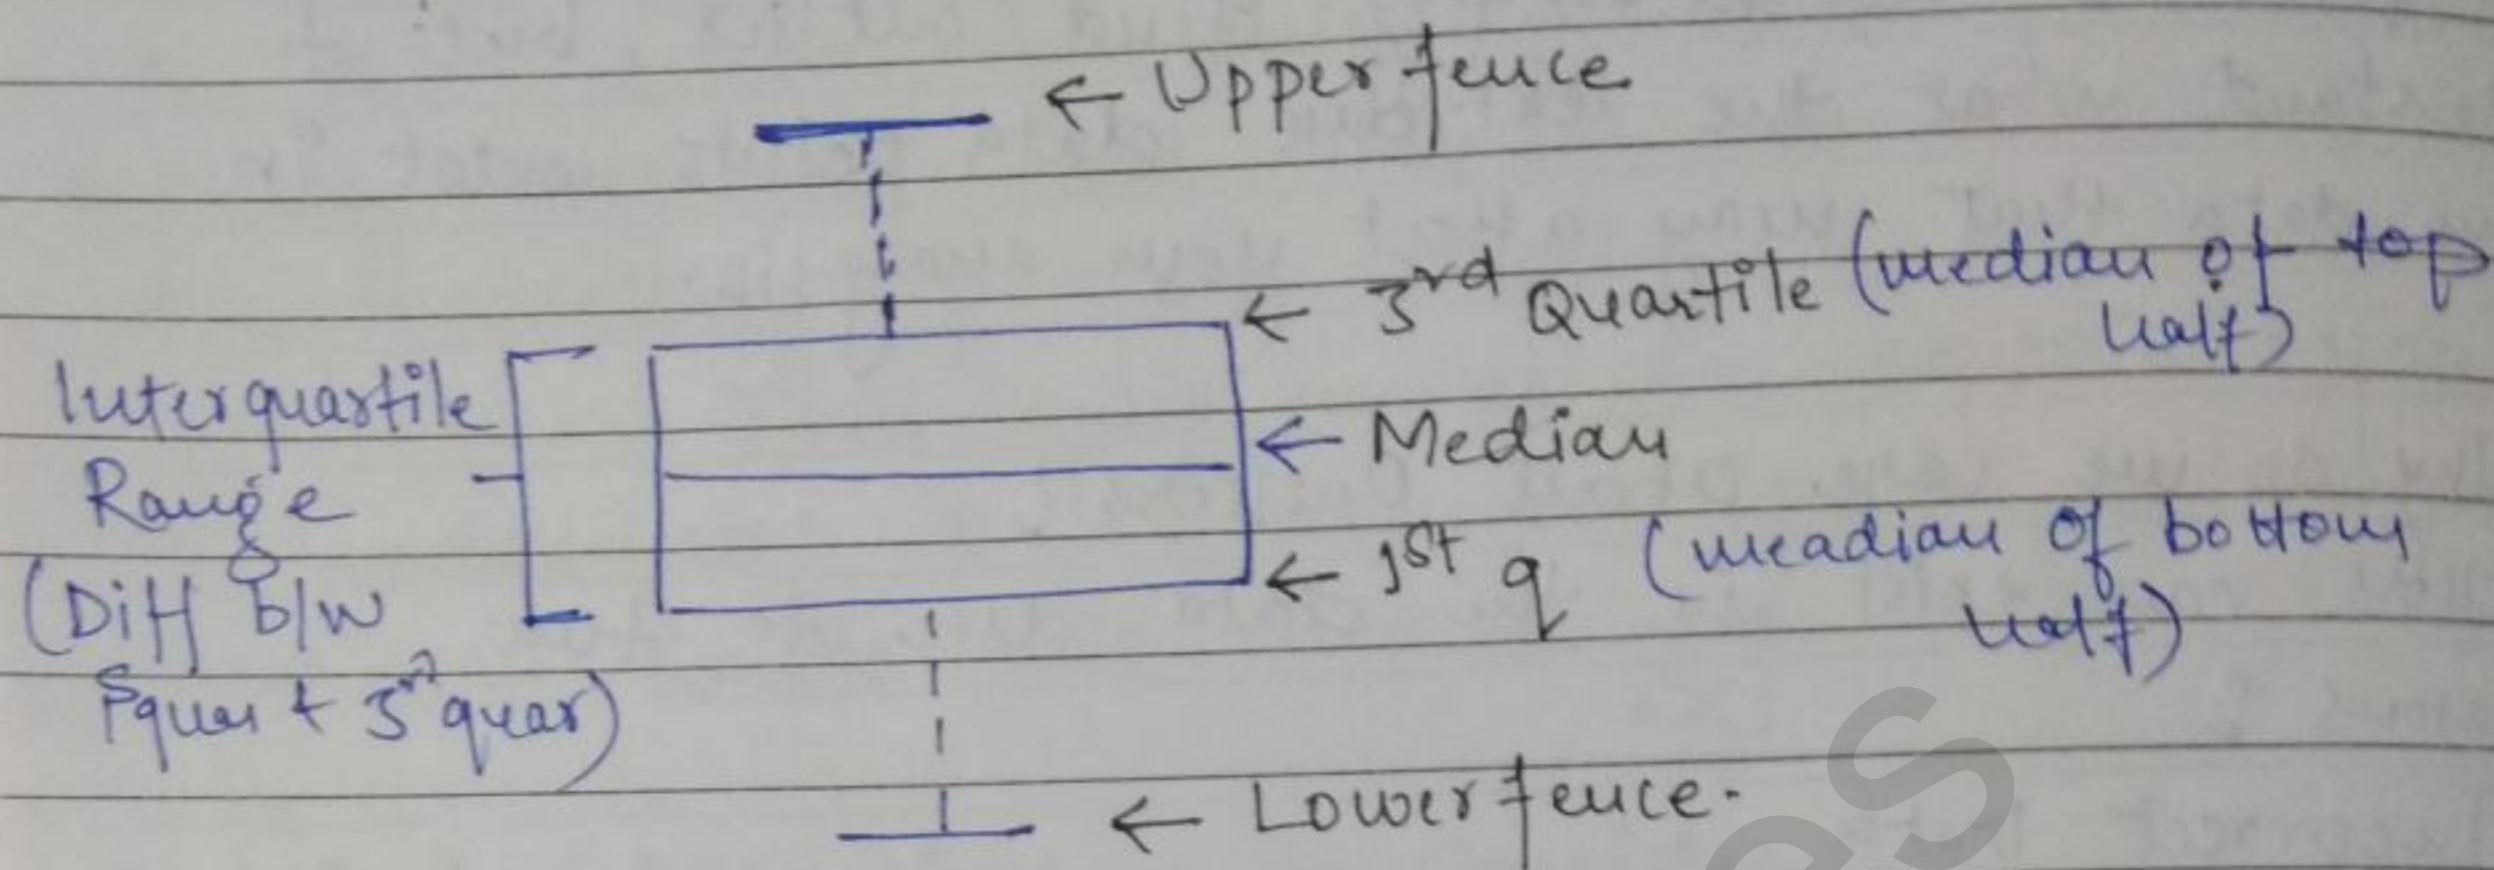 ← Upper fence
← 3rd Quartile (median of top
half)
Interquartile
Range
(Diff b/w
quar + 3rd quar)
← Median
← 1st q (meadian of bottom
half)
← Lower fence.
es